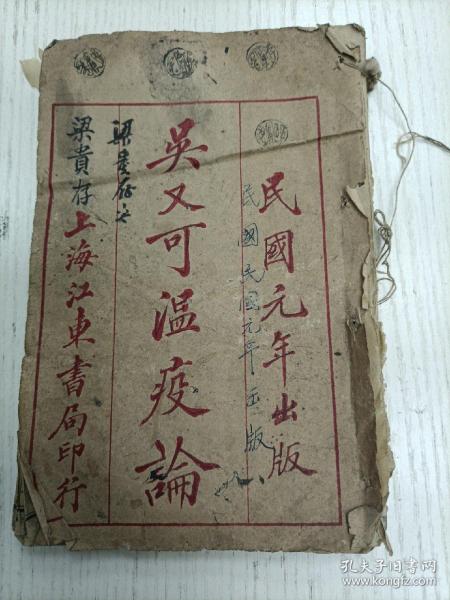 民國元年出版
民國民國元年出版
吳又可溫疫論
梁貴存
梁貴存
上海江東書局印行
孔夫子旧书网
www.kongfz.com